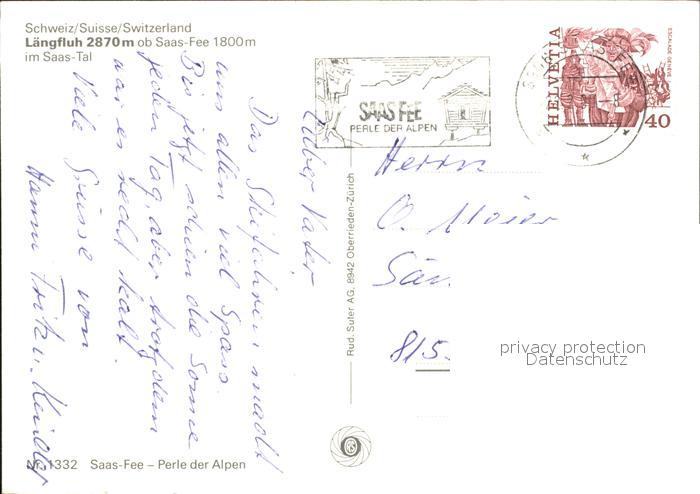 Schweiz/Suisse/Switzerland
Längfluh 2870 m ob Saas-Fee 1800 m
im Saas-Tal
SAAS FEE
PERLE DER ALPEN
HELVETIA
ESCALADE GENÈVE
40
Lieber Vater
Das Skifahren macht
uns allen viel Spass.
Bis jetzt schien die Sonne
jeden Tag, aber trotzdem
war es recht kalt.
Viele Grüsse von
Hanni Fritz u. Kinder
Herrn
O. Moser
Sän
815.
privacy protection
Datenschutz
Rud. Suter AG, 8942 Oberrieden-Zürich
Nr. 1332 Saas-Fee – Perle der Alpen